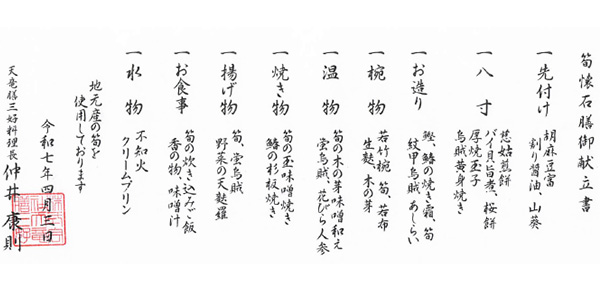 筍懐石膳御献立書
一先付け
胡麻豆富
割り醤油、山葵
一八寸
慈姑煎餅
バイ貝旨煮、桜餅
厚焼玉子
烏賊黄身焼き
一お造り
鰹、鰆の焼き霜、筍
紋甲烏賊あしらい
一椀物
若竹椀 筍、若布
生麩、木の芽
一温物
筍の木の芽味噌和え
蛍烏賊、花びら人参
一焼き物
筍の玉味噌焼き
鰆の杉板焼き
一揚げ物
筍、蛍烏賊、
野菜の天麩羅
一お食事
筍の炊き込みご飯
香の物、味噌汁
一水物
不知火
クリームプリン
地元産の筍を
使用しております
令和七年四月三日
天竜膳三好料理長 仲井康則